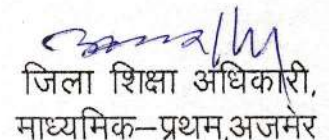 जिला शिक्षा अधिकारी,
माध्यमिक–प्रथम,अजमेर